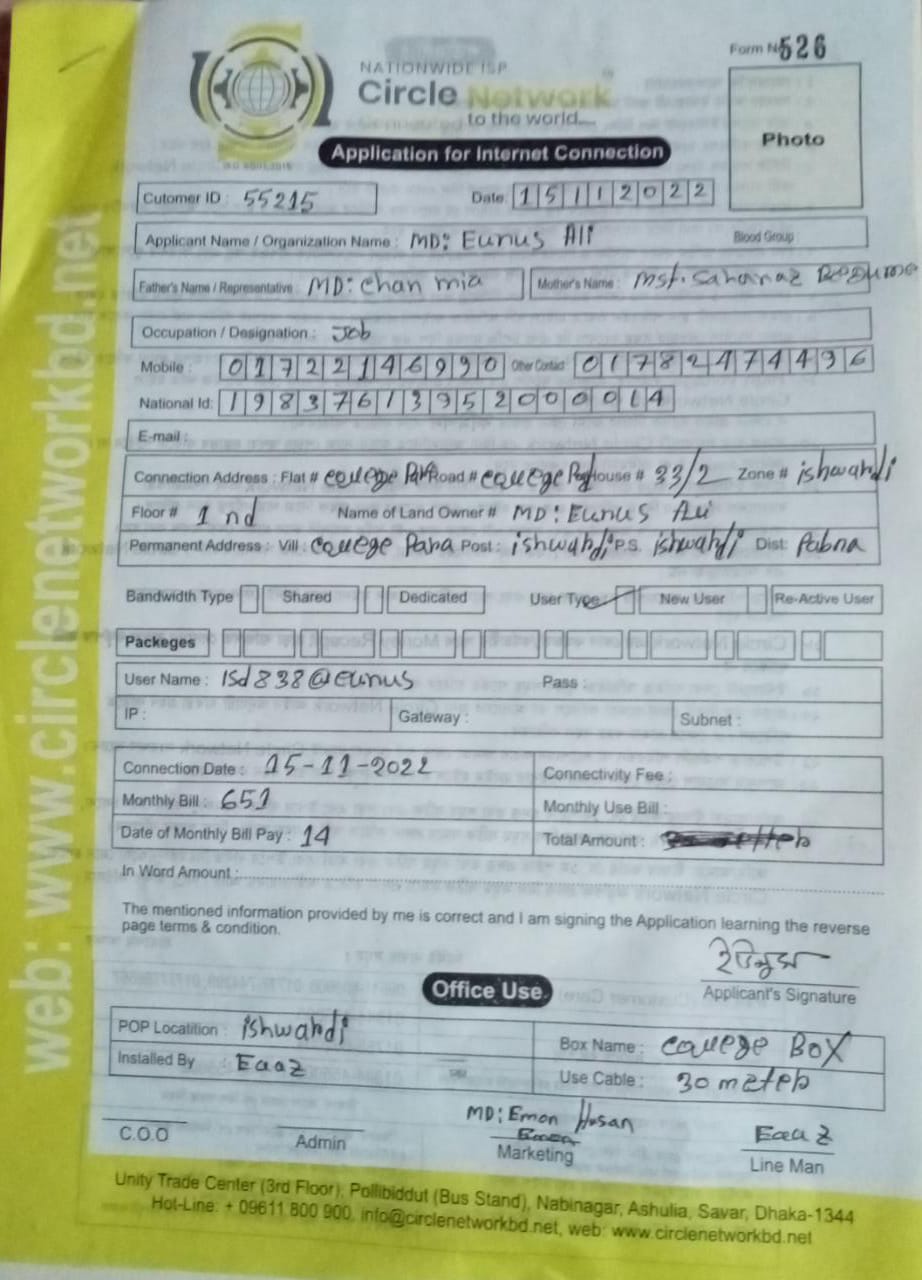 Form No 526
NATIONWIDE ISP
Circle Network
to the world....
Application for Internet Connection
Photo
Cutomer ID : 55215 Date: 15112022
Applicant Name / Organization Name : MD: Eunus Ali Blood Group :
Father's Name / Representative : MD: chan mia Mother's Name : Mst. Sahanaz Begume
Occupation / Designation : Job
Mobile : 01722146990 Other Contact: 01782474496
National Id: 19837613952000014
E-mail :
Connection Address : Flat # college Para Road # college House # 33/2 Zone # ishwardi
Floor # 1 nd Name of Land Owner # MD: Eunus Ali
Permanent Address : Vill : college Para Post : ishwardi P.S. ishwardi Dist: Pabna
Bandwidth Type Shared Dedicated User Type New User Re-Active User
Packeges
User Name : isd838@eunus Pass :
IP : Gateway : Subnet :
Connection Date : 15-11-2022 Connectivity Fee :
Monthly Bill : 651 Monthly Use Bill :
Date of Monthly Bill Pay : 14 Total Amount :
In Word Amount :
The mentioned information provided by me is correct and I am signing the Application learning the reverse
page terms & condition.
ইউনুস
Applicant's Signature
Office Use
POP Locatition : ishwardi Box Name : college BOX
Installed By : Eaaz Use Cable : 30 meter
MD: Emon Hosan
Eaaz
C.O.O Admin Marketing Line Man
Unity Trade Center (3rd Floor), Pollibiddut (Bus Stand), Nabinagar, Ashulia, Savar, Dhaka-1344
Hot-Line: + 09611 800 900, info@circlenetworkbd.net, web: www.circlenetworkbd.net
web: www.circlenetworkbd.net